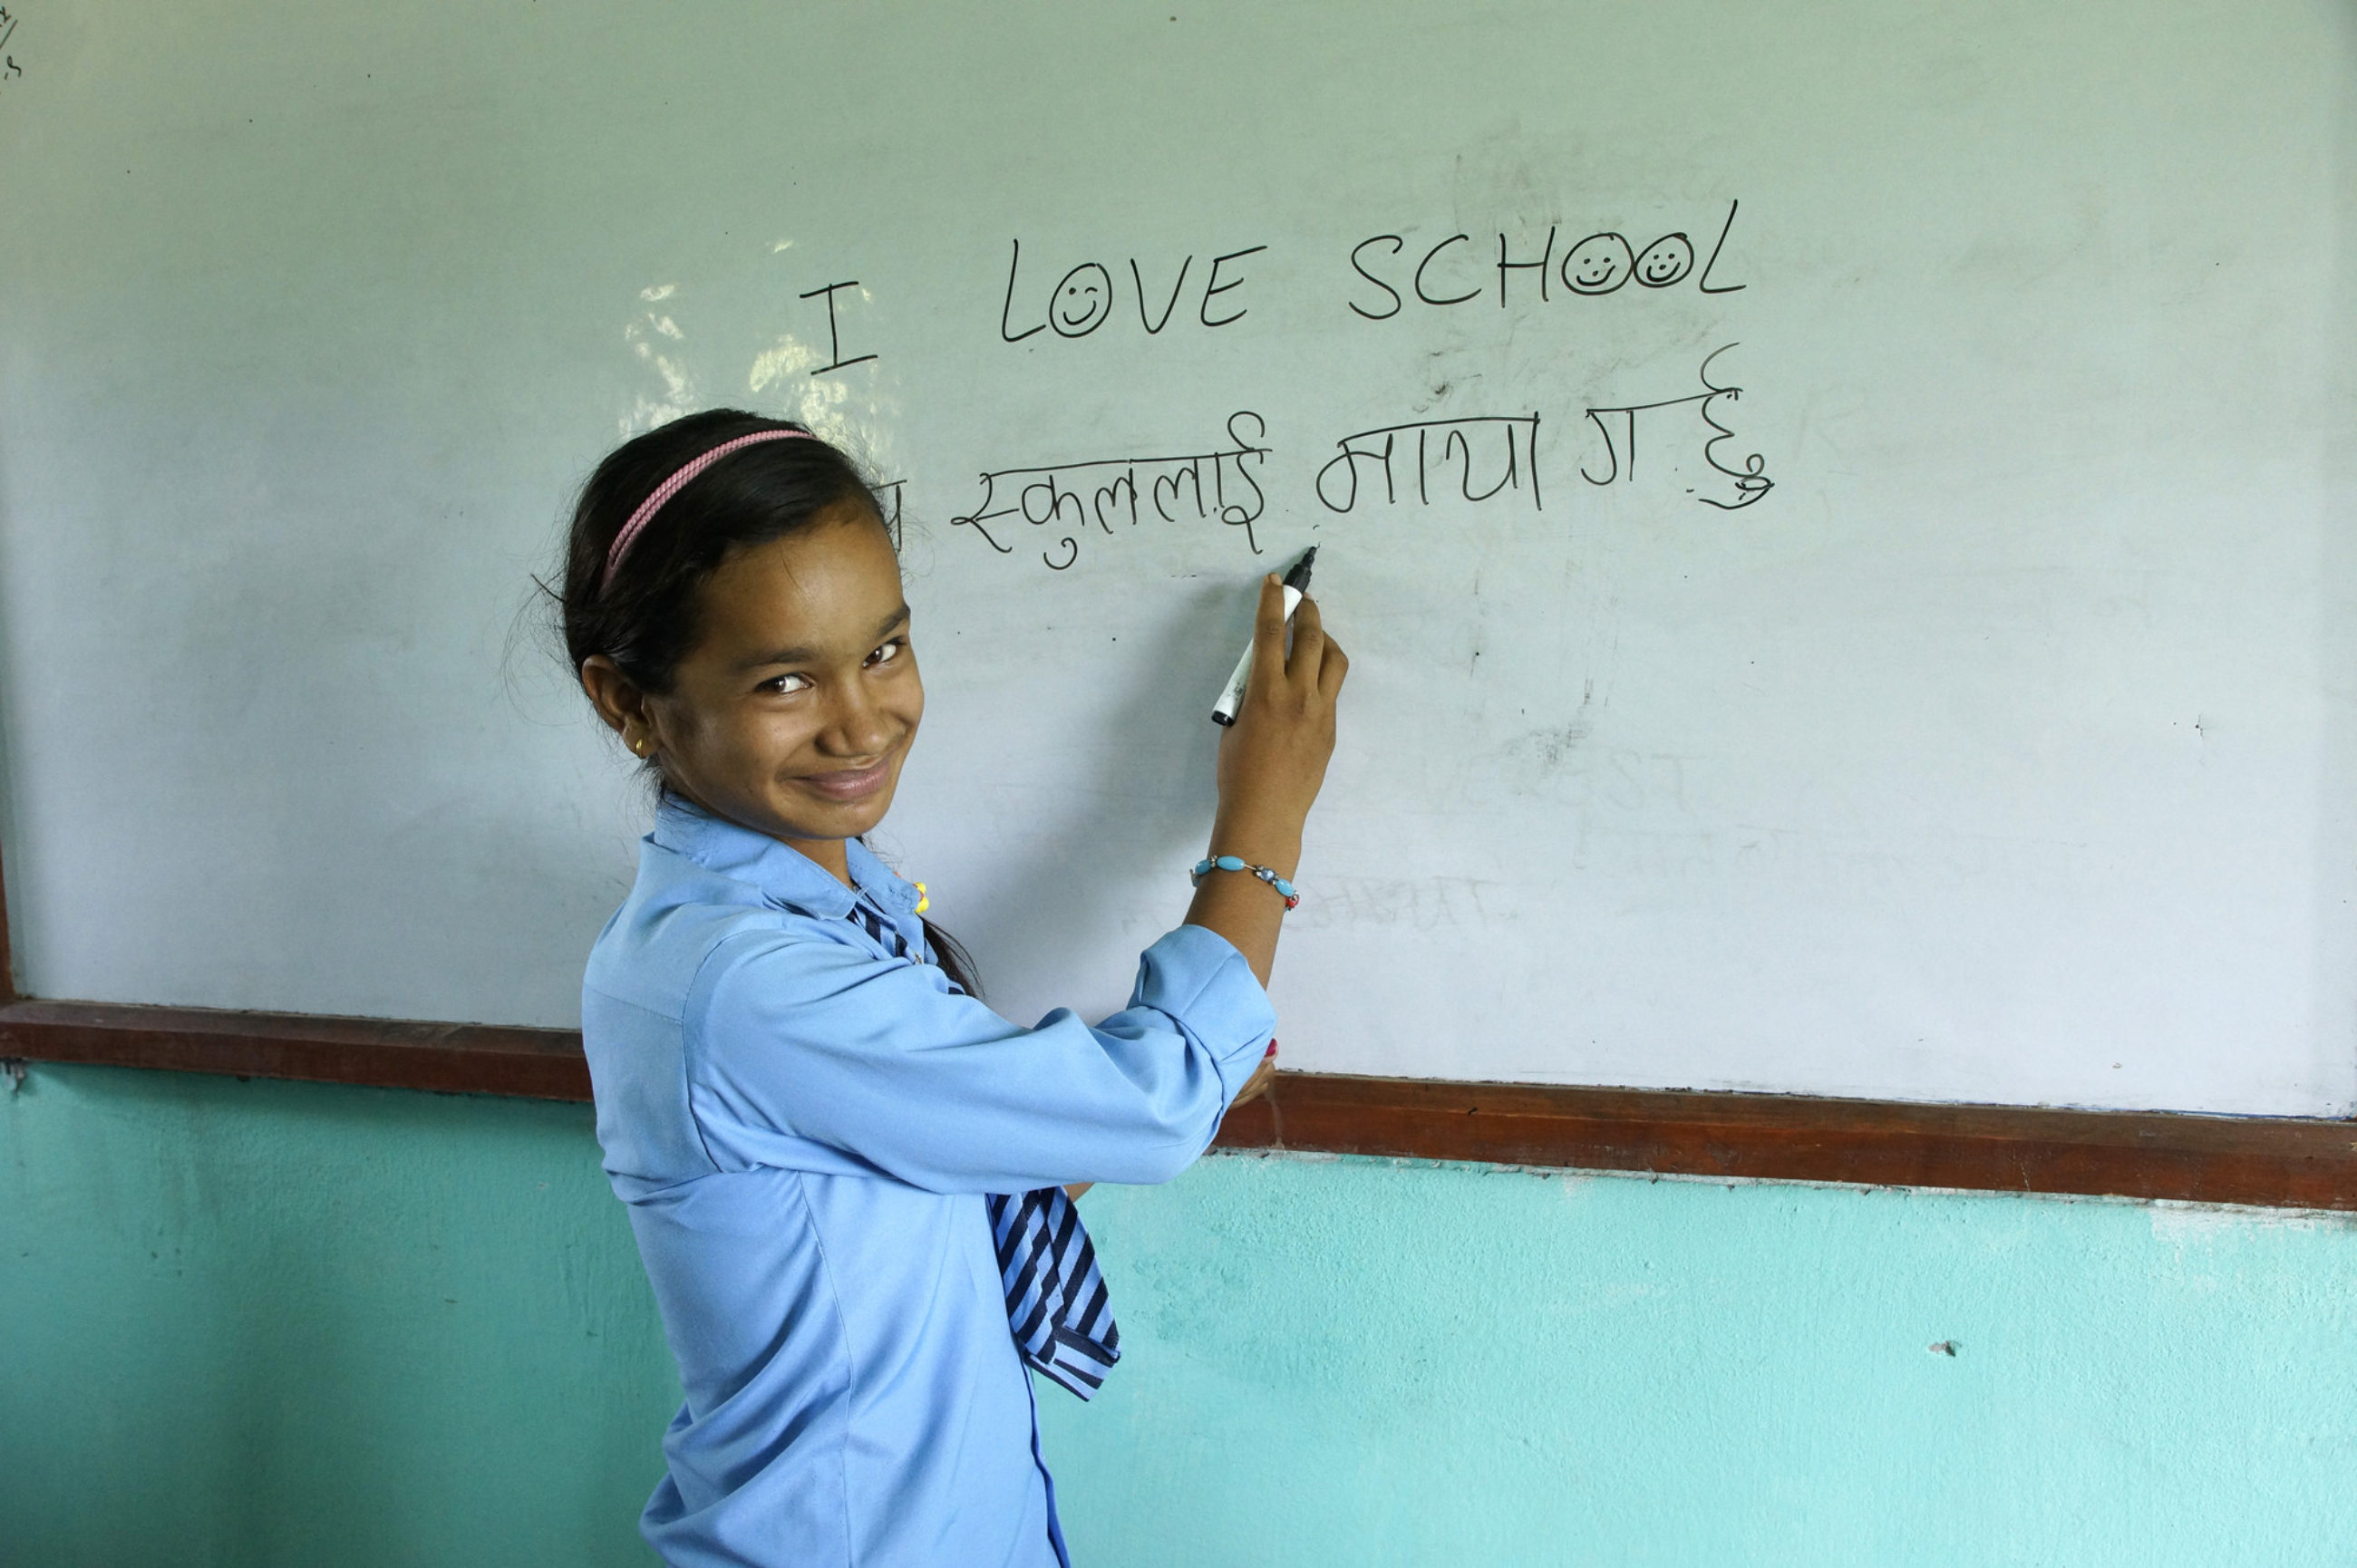 I LOVE SCHOOL
स्कुललाई माया गर्छु